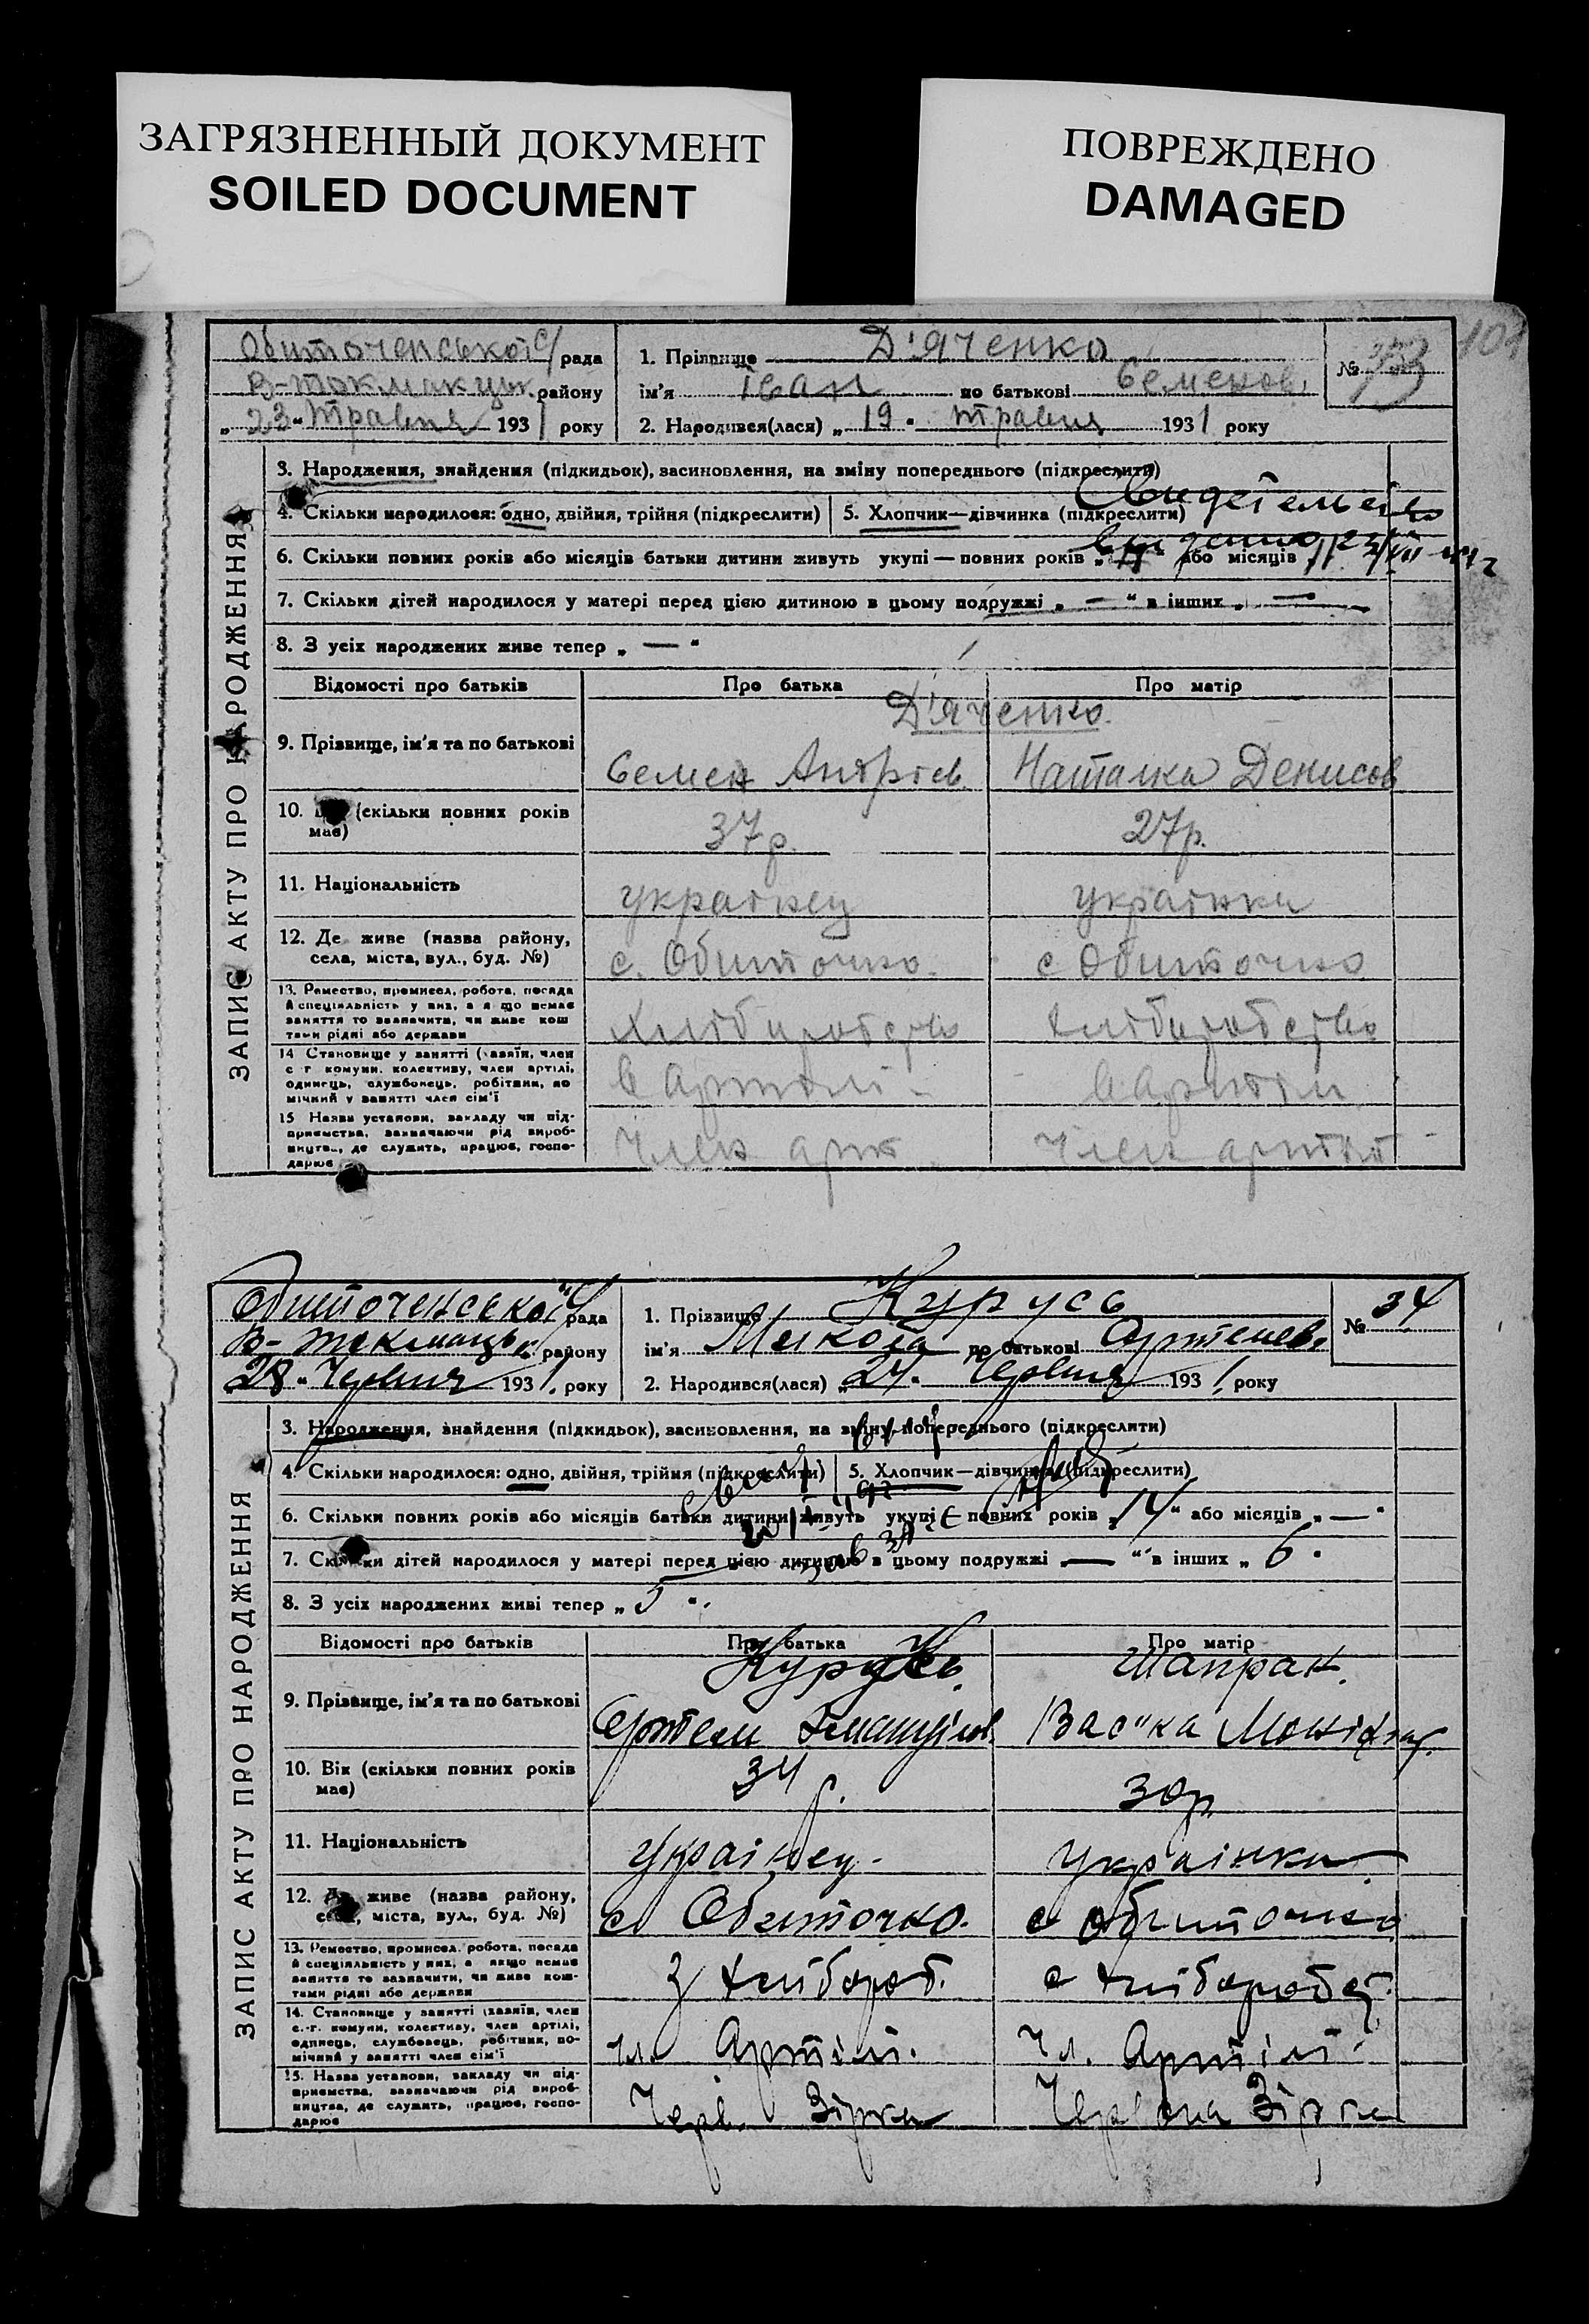 ЗАГРЯЗНЕННЫЙ ДОКУМЕНТ
SOILED DOCUMENT
ПОВРЕЖДЕНО
DAMAGED
103
Обиточенської с/рада
В-токмацьк. району
„23“ травня 1931 року
1. Прізвище Д'яченко
ім'я Іван по батькові Семенов.
2. Народився(лася) „19“ травня 1931 року
№ 33
ЗАПИС АКТУ ПРО НАРОДЖЕННЯ
3. Народження, знайдення (підкидьок), васиновлення, на зміну попереднього (підкреслити)
4. Скільки народилося: одно, двійня, трійня (підкреслити)
5. Хлопчик—дівчинка (підкреслити)
6. Скільки повних років або місяців батьки дитини живуть укупі — повних років „ або місяців
7. Скільки дітей народилося у матері перед цією дитиною в цьому подружжі „ — “ в інших „ —
8. З усіх народжених живе тепер „ — “
Відомості про батьків
Про батька
Про матір
Д'яченко.
9. Прізвище, ім'я та по батькові
Семен Андрієв.
Наталка Денисов
10. (скільки повних років має)
37р.
27р.
11. Національність
українец
українка
12. Де живе (назва району,
села, міста, вул., буд. №)
с. Обиточно.
с Обиточно
13. Ремество, промисел, робота, посада
й спеціяльність у них, а якщо немає
заняття то зазначити, чи живе кош
тами рідні або держави
Хлібиробство
Хлібиробство
14 Становище у занятті (хазяїн, член
с г комуни, колективу, член артілі,
одинець, службовець, робітник, по
мічний у занятті член сім'ї
в Артілі -
в Артілі
15 Назва установи, закладу чи під-
приємства, зазначаючи рід вироб-
ництва, де служить, працює, госпо-
дарює
Член арт
Член артілі
Обиточенської с/рада
В-токмацьк. району
28 „ Червня 1931. року
1. Прізвище Курусь
ім'я Микола по батькові Артемев.
2. Народився(лася) „27. Червня 1931. року
№ 34
ЗАПИС АКТУ ПРО НАРОДЖЕННЯ
3. Народження, знайдення (підкидьок), васиновлення, на зміну попереднього (підкреслити)
4. Скільки народилося: одно, двійня, трійня (підкреслити)
5. Хлопчик—дівчинка (підкреслити)
6. Скільки повних років або місяців батьки дитини живуть укупі — повних років „14“ або місяців „—“
7. Скільки дітей народилося у матері перед цією дитиною в цьому подружжі „ — “ в інших „ 6 “
8. З усіх народжених живі тепер „ 5 “
Відомості про батьків
Про батька
Про матір
Курусь.
Шапрак.
9. Прізвище, ім'я та по батькові
Артем
10. Вік (скільки повних років
має)
34 р.
30р.
11. Національність
Українец.
українка
12. Де живе (назва району,
села, міста, вул., буд. №)
с Обиточно.
с обиточно
13. Ремество, промисел, робота, посада
й спеціяльність у них, а якщо немає
заняття то зазначити, чи живе кош-
тами рідні або держави
з хлібороб.
с хлібороб
14. Становище у занятті (хазяїн, член
с.-г. комуни, колективу, член артілі,
одинець, службовець, робітник, по-
мічний у занятті член сім'ї
чл. Артілі.
Чл. Артілі
15. Назва установи, закладу чи під-
приємства, зазначаючи рід вироб-
ництва, де служить, працює, госпо-
дарює
Черв. Зірка
Червона Зірка